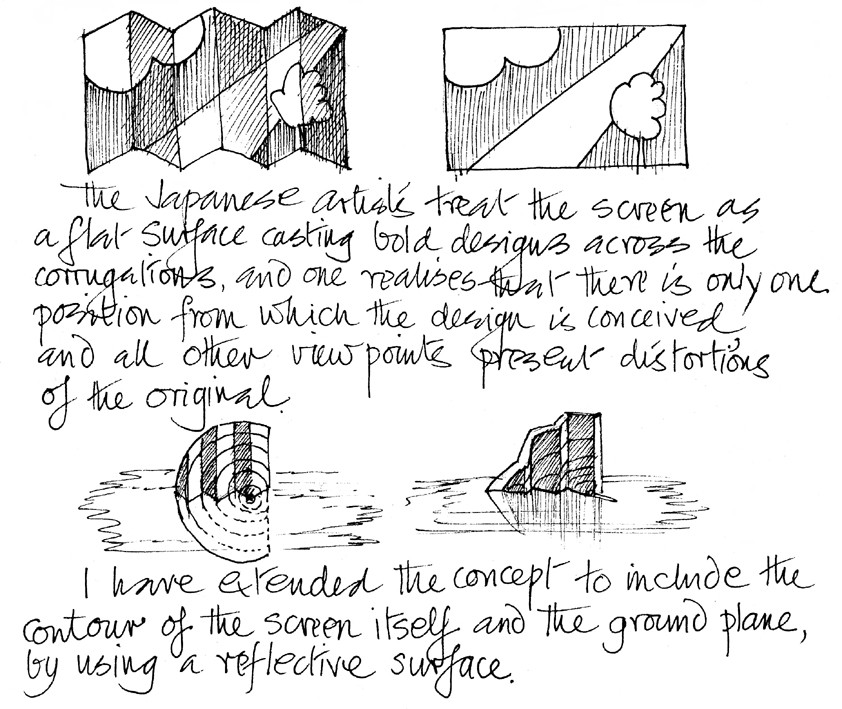 The Japanese artists treat the screen as
a flat surface casting bold designs across the
corrugations, and one realises that there is only one
position from which the design is conceived
and all other viewpoints present distortions
of the original.
I have extended the concept to include the
contour of the screen itself and the ground plane,
by using a reflective surface.